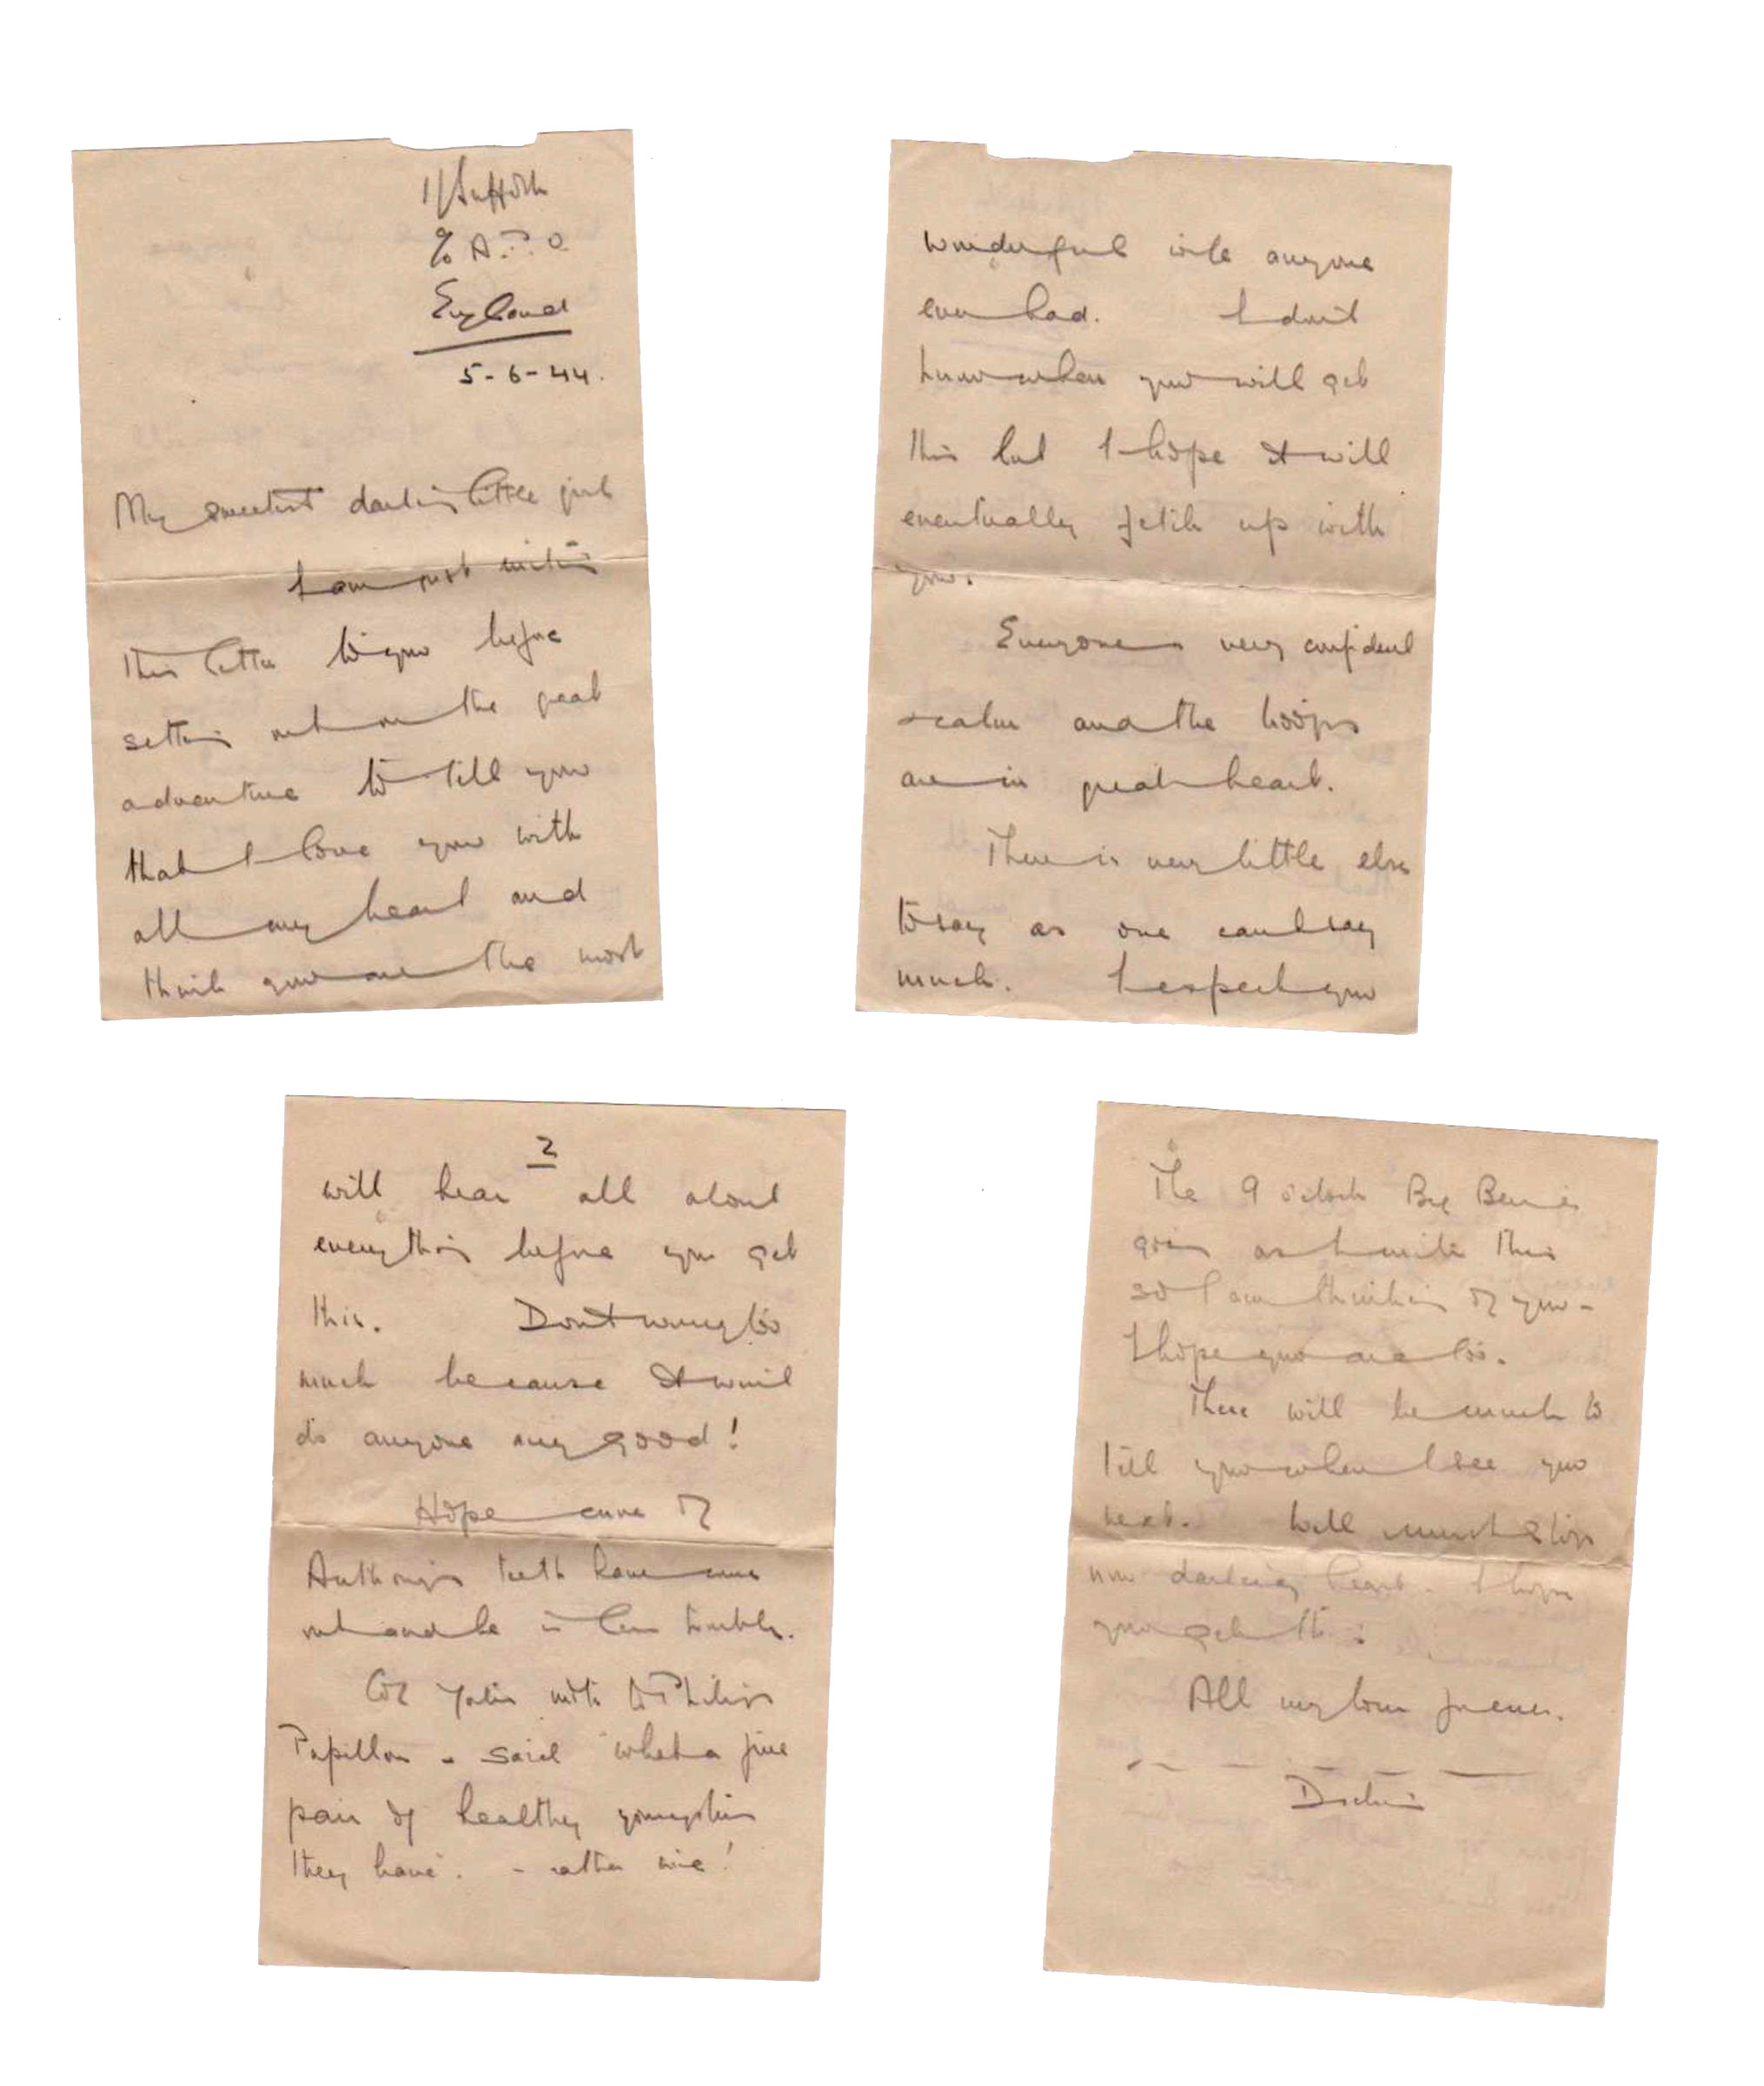 1/Suffolk
% A.P.O.
England
5-6-44.
My sweetest darling little girl
I am just writing
this letter to you before
setting out on the great
adventure to tell you
that I love you with
all my heart and
think you are the most
wonderful wife anyone
ever had. I don't
know when you will get
this but I hope it will
eventually fetch up with
you.
Everyone is very confident
& calm and the troops
are in great heart.
There is very little else
to say as one can't say
much. I expect you
2
will hear all about
everything before you get
this. Don't worry too
much because it won't
do anyone any good!
Hope some of
Anthony's teeth have come
out and he is less trouble.
Col wrote to Philip
Papillon & said "what a fine
pair of healthy youngsters
they have". - rather nice!
The 9 o'clock Big Ben is
going as I write this
so I am thinking of you -
I hope you are too.
There will be much to
tell you when I see you
next. Well must stop
now darling heart. I hope
you get this.
All my love forever.